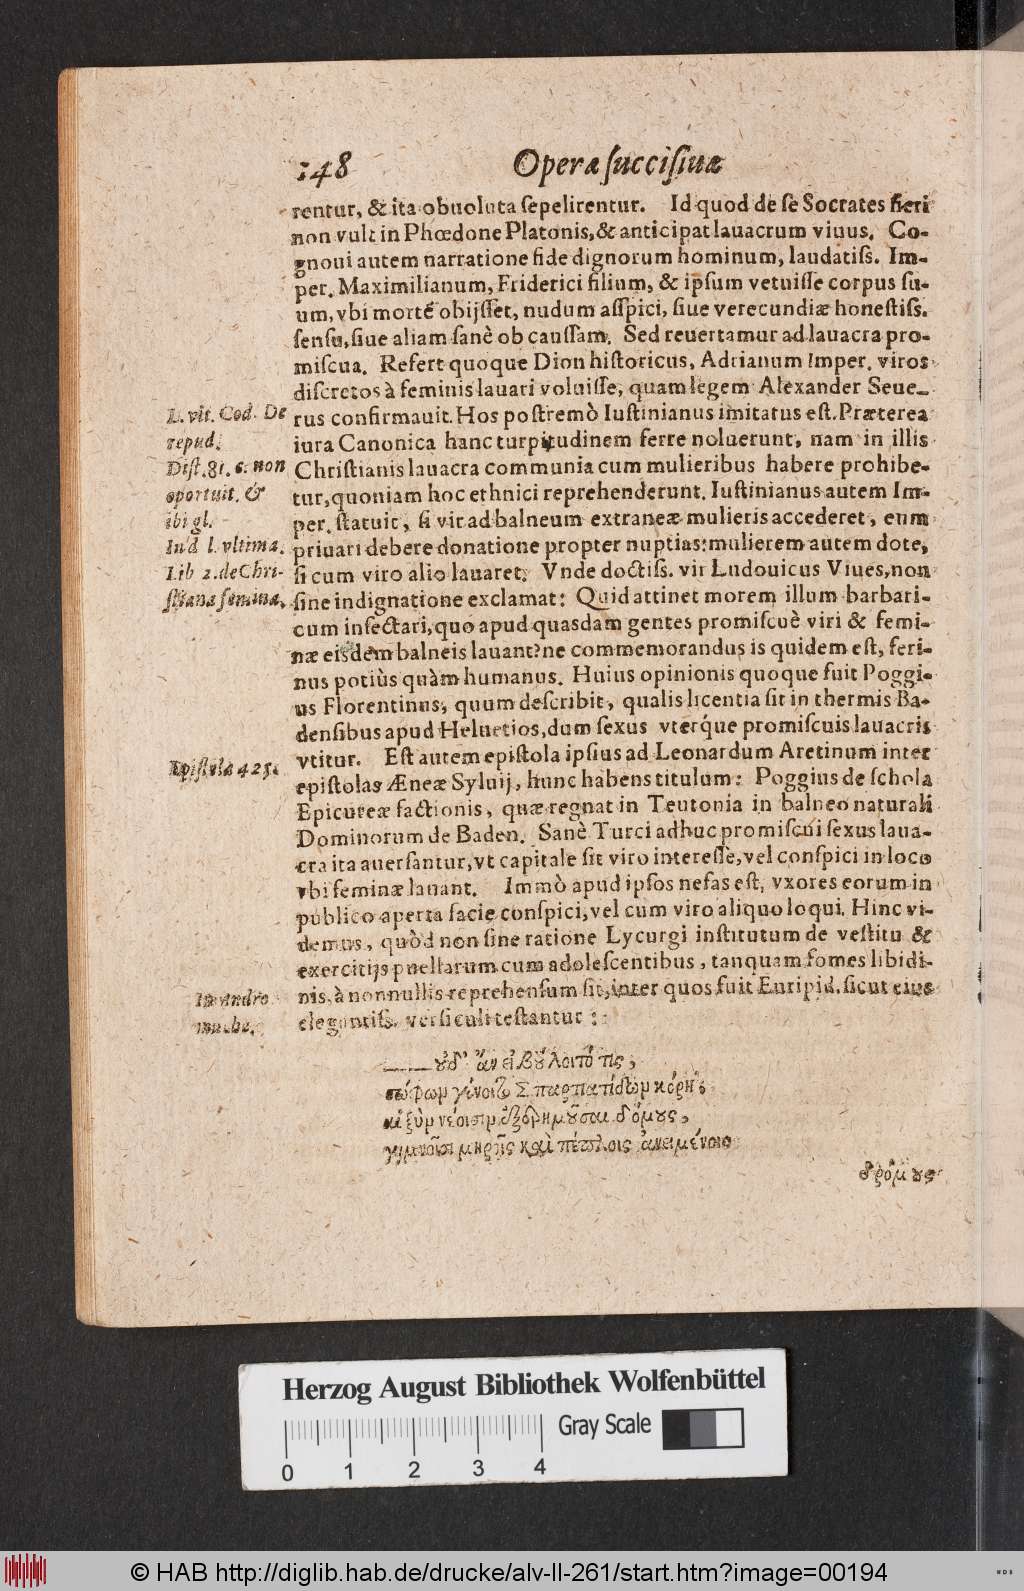 148 Operæ ſucciſiuæ
rentur, & ita obuoluta ſepelirentur. Id quod de ſe Socrates fieri
non vult in Phœdone Platonis, & anticipat lauacrum viuus. Co-
gnoui autem narratione fide dignorum hominum, laudatiſſ. Im-
per. Maximilianum, Friderici filium, & ipſum vetuiſſe corpus ſu-
um, vbi mortē obijſſet, nudum aſſpici, ſiue verecundiæ honeſtiſſ.
ſenſu, ſiue aliam ſanè ob cauſſam. Sed reuertamur ad lauacra pro-
miſcua. Refert quoque Dion hiſtoricus, Adrianum Imper. viros
diſcretos à feminis lauari voluiſſe, quam legem Alexander Seue-
rus confirmauit. Hos poſtremò Iuſtinianus imitatus eſt. Præterea
iura Canonica hanc turpitudinem ferre noluerunt, nam in illis
Chriſtianis lauacra communia cum mulieribus habere prohibe-
tur, quoniam hoc ethnici reprehenderunt. Iuſtinianus autem Im-
per. ſtatuit, ſi vir ad balneum extraneæ mulieris accederet, eum
priuari debere donatione propter nuptias: mulierem autem dote,
ſi cum viro alio lauaret. Vnde doctiſſ. vir Ludouicus Viues, non
ſine indignatione exclamat: Quid attinet morem illum barbari-
cum inſectari, quo apud quasdam gentes promiſcuè viri & femi-
næ eisdem balneis lauant? ne commemorandus is quidem eſt, feri-
nus potiùs quàm humanus. Huius opinionis quoque fuit Poggi-
us Florentinus, quum deſcribit, qualis licentia ſit in thermis Ba-
denſibus apud Heluetios, dum ſexus vterq́ue promiſcuis lauacris
vtitur. Eſt autem epiſtola ipſius ad Leonardum Aretinum inter
epiſtolas Æneæ Syluij, hunc habens titulum: Poggius de ſchola
Epicureæ factionis, quæ regnat in Teutonia in balneo naturali
Dominorum de Baden. Sanè Turci adhuc promiſcui ſexus laua-
cra ita auerſantur, vt capitale ſit viro intereſſe, vel conſpici in loco
vbi feminæ lauant. Immò apud ipſos nefas eſt, vxores eorum in
publico aperta facie conſpici, vel cum viro aliquo loqui. Hinc vi-
demus, quòd non ſine ratione Lycurgi inſtitutum de veſtitu &
exercitijs puellarum cum adoleſcentibus, tanquam fomes libidi-
nis, à nonnullis reprehenſum ſit, inter quos fuit Euripid. ſicut eius
elegantiſſ. verſiculi teſtantur:
L. vlt. Cod. De
repud.
Diſt. 81. c. non
oportuit. &
ibi gl.
In d l. vltima.
Lib 2. de Chri-
ſtiana femina.
Epiſtola 425.
In Andro
mache.
οὐδ' ἂν εἰ βούλοιτό τις,
σώφρων γένοιτο Σπαρτιατίδων κόρη,
αἳ ξὺν νέοισιν ἐξερημοῦσαι δόμους,
γυμνοῖσι μηροῖς καὶ πέπλοις ἀνειμένοις
δρόμους
Herzog August Bibliothek Wolfenbüttel
Gray Scale
0 1 2 3 4
© HAB http://diglib.hab.de/drucke/alv-ll-261/start.htm?image=00194